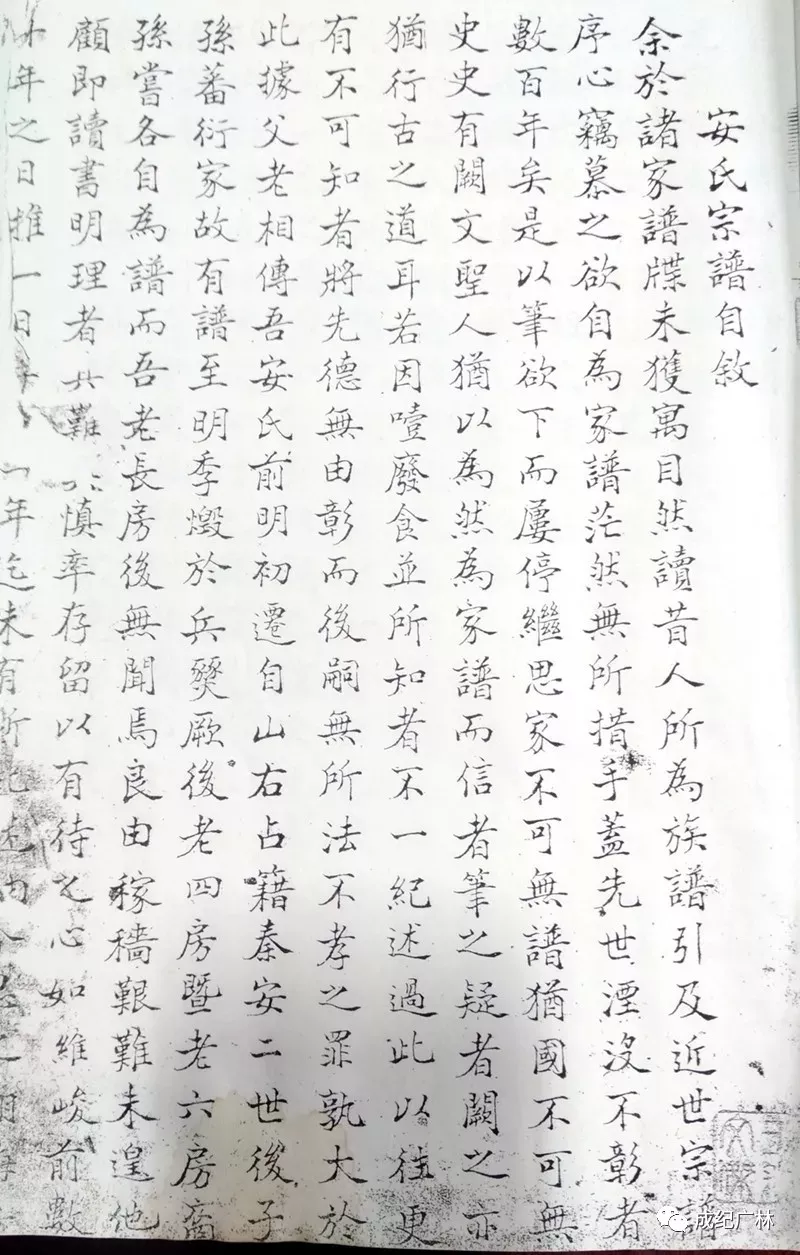 安氏宗譜自敘
余於諸家譜牒未獲寓目然讀昔人所為族譜引及近世宗譜
序心竊慕之欲自為家譜茫然無所措手蓋先世湮沒不彰者
數百年矣是以筆欲下而屢停繼思家不可無譜猶國不可無
史史有闕文聖人猶以為然為家譜而信者筆之疑者闕之亦
猶行古之道耳若因噎廢食並所知者不一紀述過此以往更
有不可知者將先德無由彰而後嗣無所法不孝之罪孰大於
此據父老相傳吾安氏前明初遷自山右占籍秦安二世後子
孫蕃衍家故有譜至明季燬於兵燹厥後老四房暨老六房裔
孫嘗各自為譜而吾老長房後無聞焉良由稼穡艱難未遑他
顧即讀書明理者慎率存留以有待之心如維峻前數
十年之日推一日年迄未有所
成紀广林